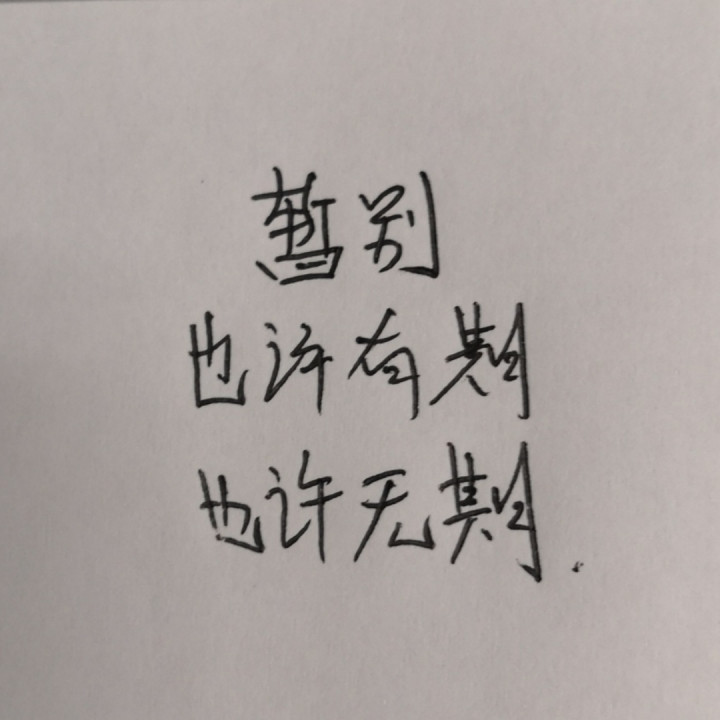 暂别
也许有期
也许无期.